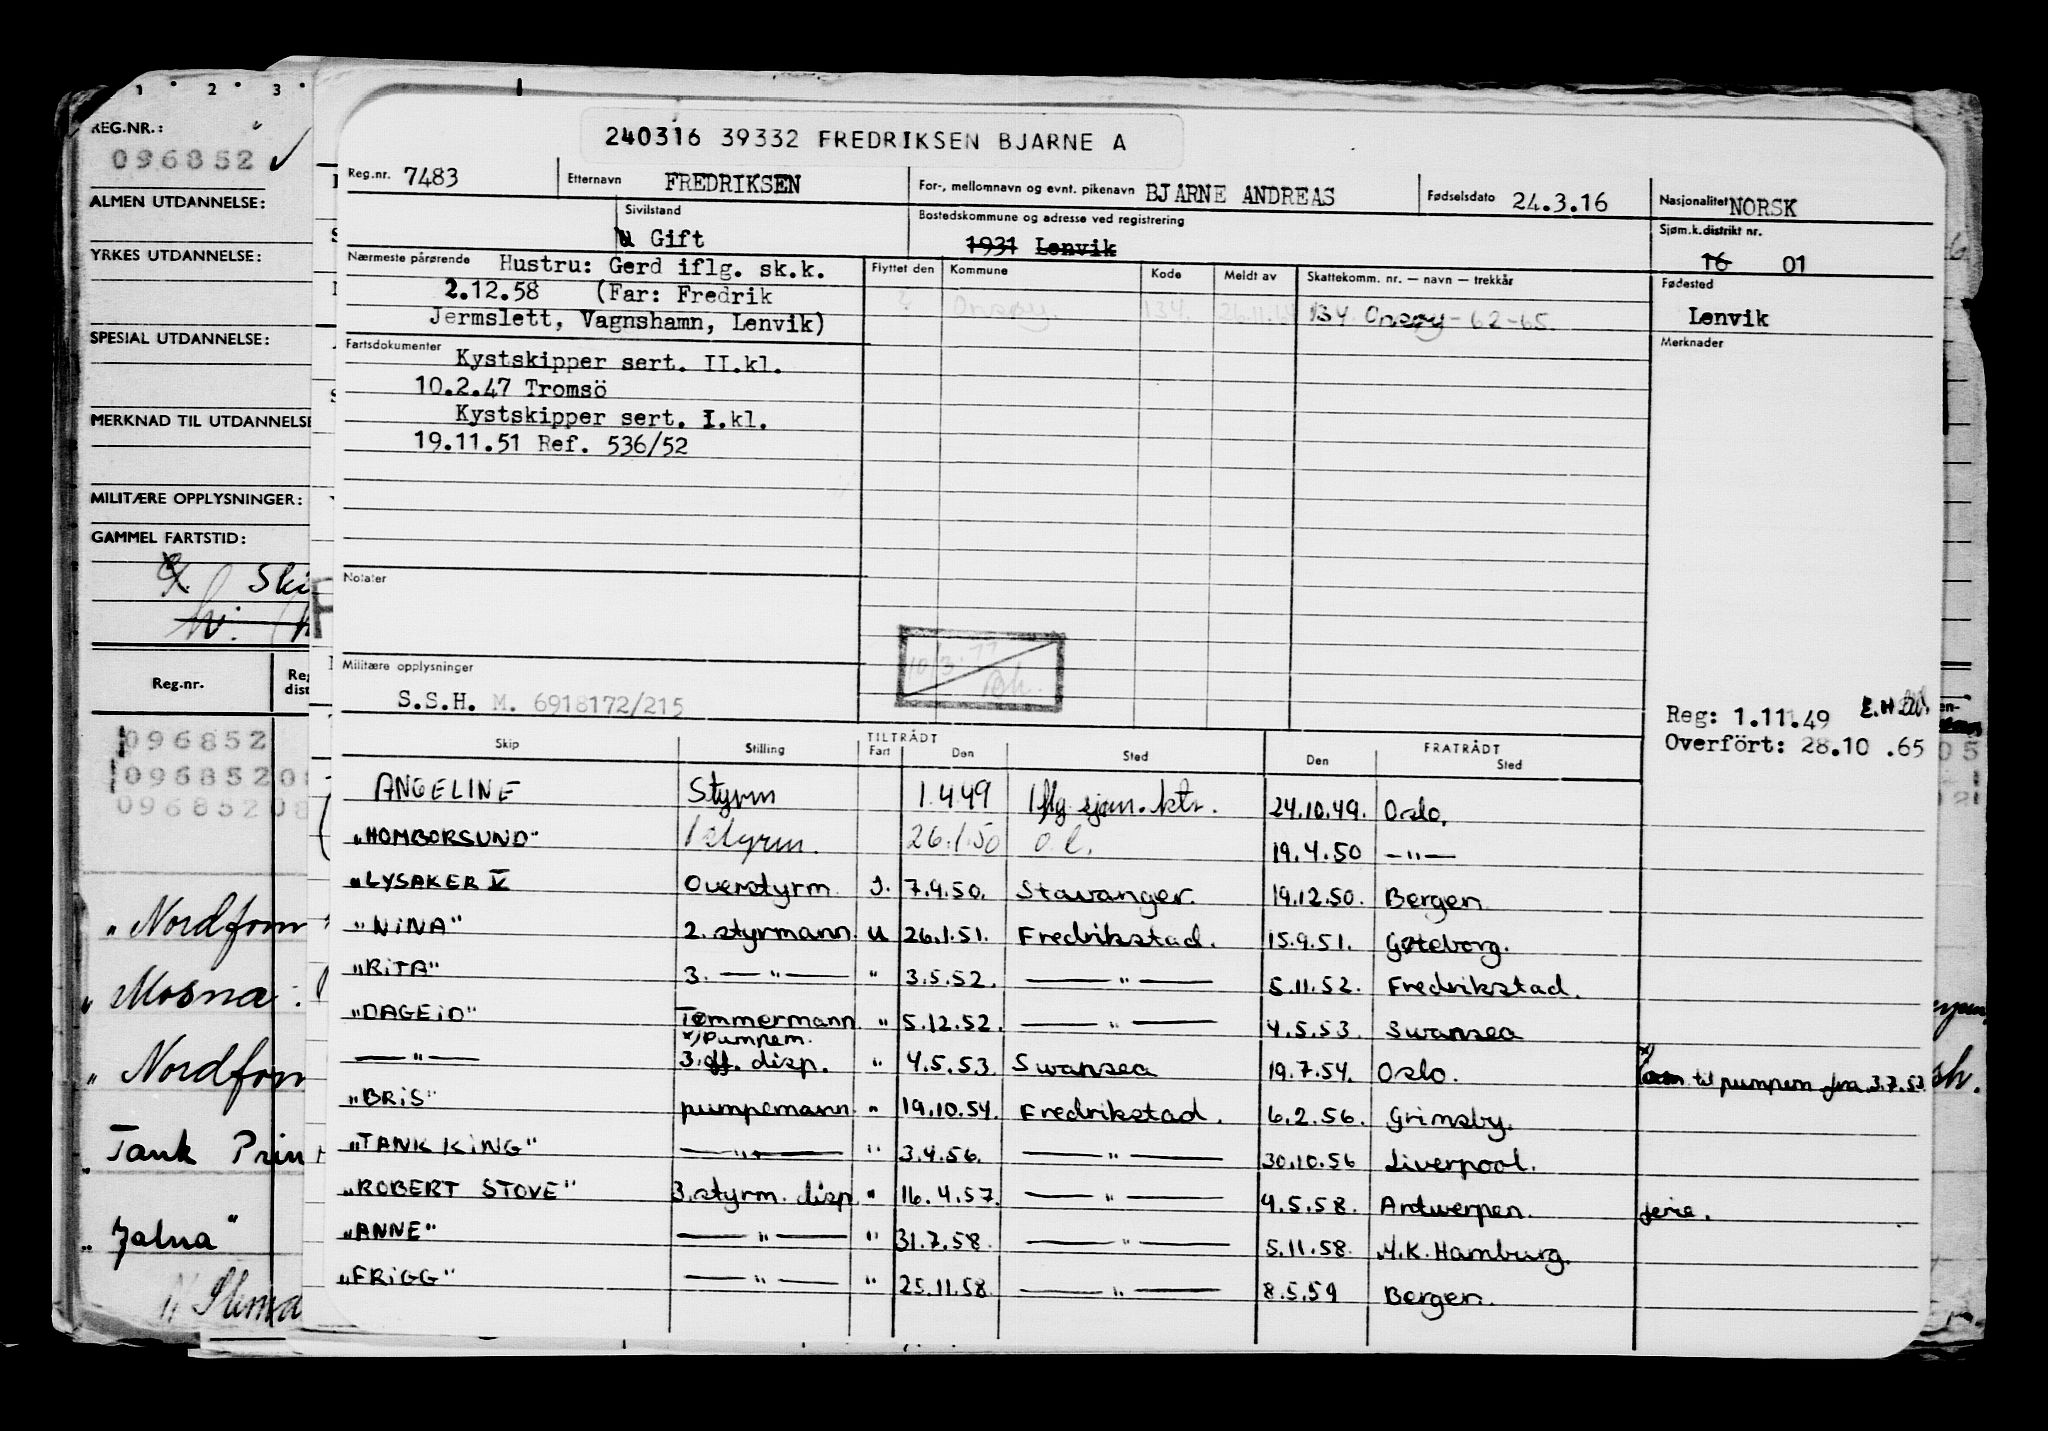 1 2 3
REG.NR.:
096852 ✓
ALMEN UTDANNELSE:
YRKES UTDANNELSE:
SPESIAL UTDANNELSE:
MERKNAD TIL UTDANNELSE
MILITÆRE OPPLYSNINGER:
GAMMEL FARTSTID:
Ski
Reg.nr.
096852
096852
096852
"Nordfonn
"Mosna
"Nordfonn
"Tank Prin
"Jalna"
240316 39332 FREDRIKSEN BJARNE A
Reg.nr. 7483 Etternavn FREDRIKSEN For-, mellomnavn og evnt. pikenavn BJARNE ANDREAS Fødselsdato 24.3.16 Nasjonalitet NORSK
Sivilstand Gift Bostedskommune og adresse ved registrering 1931 Lenvik Sjøm.k.distrikt nr. 16 01
Nærmeste pårørende Hustru: Gerd iflg. sk.k.
2.12.58 (Far: Fredrik
Jermslett, Vagnshamn, Lenvik)
Flyttet den Kommune Kode Meldt av Skattekomm. nr. — navn — trekkår
? Onsøy. 134. 26.11. 134 Onsøy - 62-65.
Fødested
Lenvik
Merknader
Fartsdokumenter Kystskipper sert. II.kl.
10.2.47 Tromsö
Kystskipper sert. I.kl.
19.11.51 Ref. 536/52
Notater
10/3.77
Militære opplysninger
S.S.H. M. 6918172/215
Reg: 1.11.49
Overfört: 28.10.65
Skip Stilling TILTRÅDT Fart Den Sted FRATRÅDT Den Sted
ANGELINE Styrm 1.4.49 Iflg sjøm.ktr. 24.10.49. Oslo.
"HOMBORSUND" 1 styrm. 26.1.50 o.l. 19.4.50 —"—
"LYSAKER V Overstyrm. J. 7.9.50. Stavanger. 19.12.50. Bergen
"NINA" 2. styrmann. u 26.1.51. Fredrikstad. 15.9.51. Gøteborg.
"RITA" 3. —"— " 3.5.52. —"— 5.11.52. Fredrikstad.
"DAGEID" Tømmermann " 5.12.52. —"— 4.5.53. Swansea
x) Pumpem.
—"— 3. off. disp. " 4.5.53. Swansea 19.7.54. Oslo. x) til pumpem fra 3.7.53
"BRIS" pumpemann " 19.10.54. Fredrikstad. 6.2.56. Grimsby.
"TANK KING" —"— " 3.4.56. —"— 30.10.56 Liverpool.
"ROBERT STOVE" 3. styrm. disp " 16.4.57. —"— 4.5.58. Antwerpen. ferie.
"ANNE" —"— " 31.7.58. —"— 5.11.58. N.K. Hamburg.
"FRIGG" —"— " 25.11.58. —"— 8.5.59 Bergen.